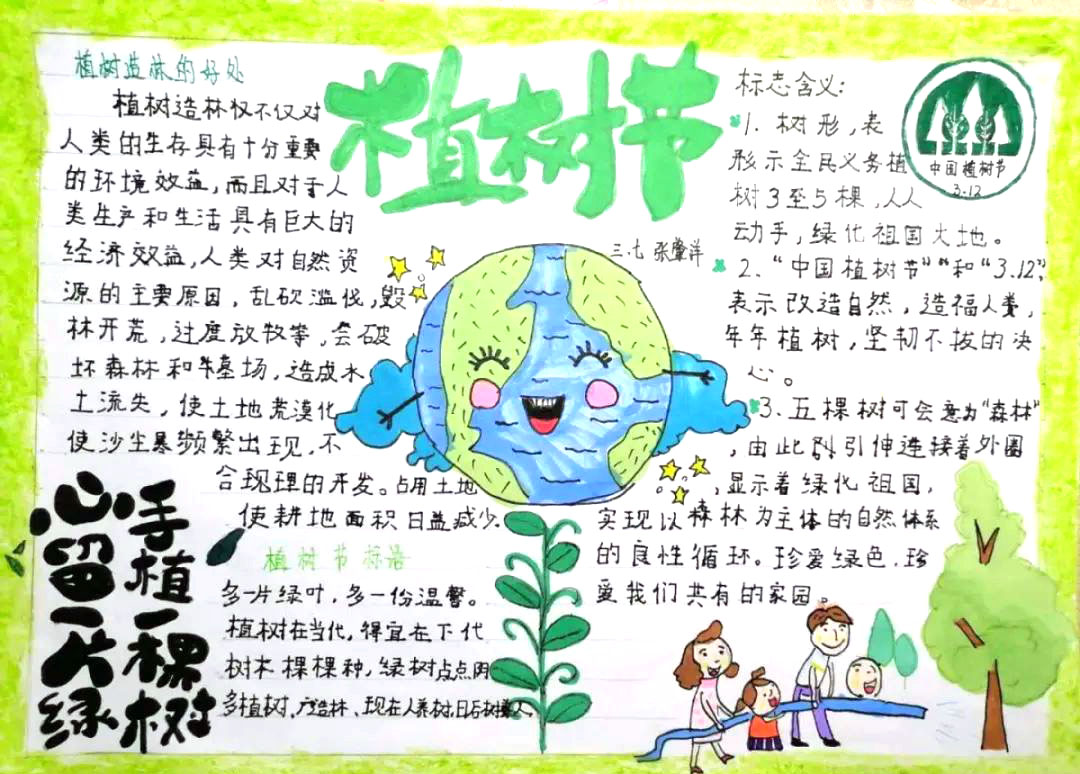 植树节
三.七 张肇洋
植树造林的好处
植树造林仅不仅对
人类的生存具有十分重要
的环境效益,而且对于人
类生产和生活具有巨大的
经济效益,人类对自然资
源的主要原因,乱砍滥伐,毁
林开荒,过度放牧等,会破
坏森林和牛基场,造成水
土流失,使土地荒漠化
使沙尘暴频繁出现,不
合现理的开发。占用土地
使耕地面积日益减少.
植树节标语
多一片绿叶,多一份温馨。
植树在当代,得宜在下代
树木棵棵种,绿树点点阴
多植树,广造林、现在人养树,日后树养人.
手植一棵树
心留一片绿
标志含义:
1. 树形,表
形示全民义务植
树3至5棵,人人
动手,绿化祖国大地。
2、“中国植树节”“和“3.12”,
表示改造自然,造福人类,
年年植树,坚韧不拔的决
心。
3、五棵树可会意为“森林”
,由此引伸连接着外圈
,显示着绿化祖国,
实现以森林为主体的自然体系
的良性循环。珍爱绿色,珍
爱我们共有的家园。
中国植树节
3·12